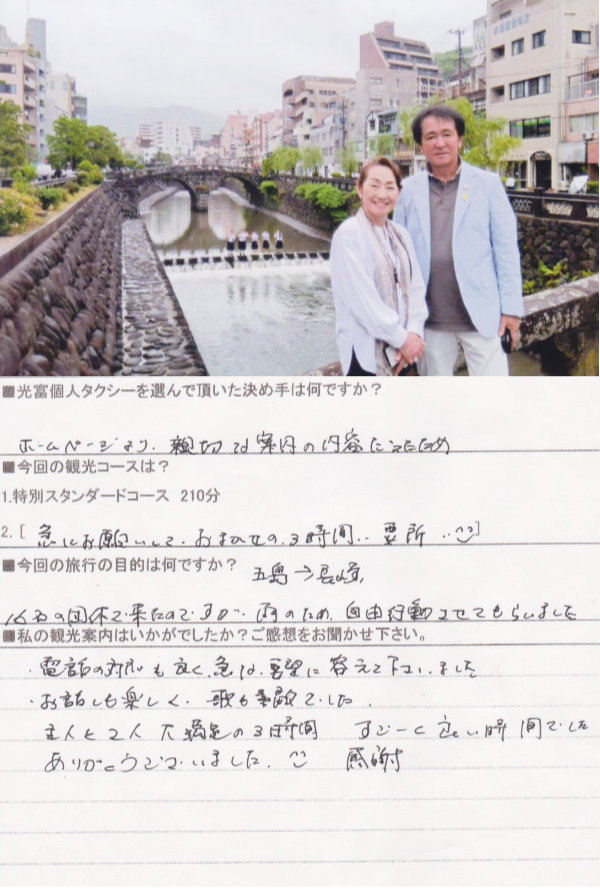 ■光富個人タクシーを選んで頂いた決め手は何ですか？
ホームページより、親切な案内の内容だったため
■今回の観光コースは？
1.特別スタンダードコース 210分
2.[ 急にお願いして、おまかせの、3時間‥要所 ‥^^]
■今回の旅行の目的は何ですか？ 五島→長崎
16名の団体で来たのですが、雨のため、自由行動させてもらいました
■私の観光案内はいかがでしたか？ご感想をお聞かせ下さい。
・電話の対応も良く、急な要望に答えて下さいました
・お話しも楽しく、歌も素敵でした。
主人と2人大満足の3時間 すご〜く良い時間でした
ありがとうございました。^^ 感謝